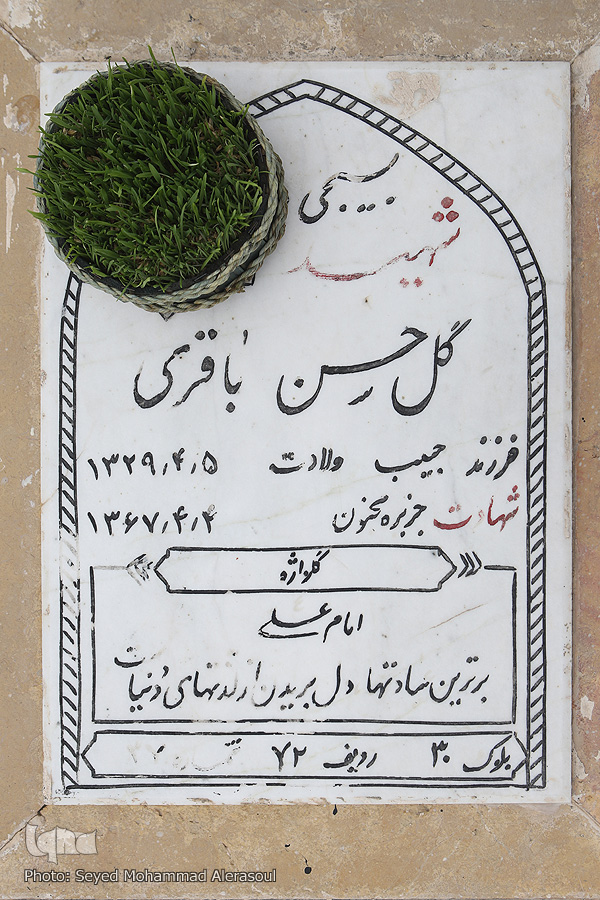 بسیجی
شهید
گل حسن باقری
فرزند حبیب ولادت ۱۳۲۹/۴/۵
شهادت جزیره مجنون ۱۳۶۷/۴/۴
گلواژه
امام علی
برترین عبادتها دل بریدن از لذتهای دنیاست
بلوک ۳۰ ردیف ۷۲
iqna
Photo: Seyed Mohammad Alerasoul